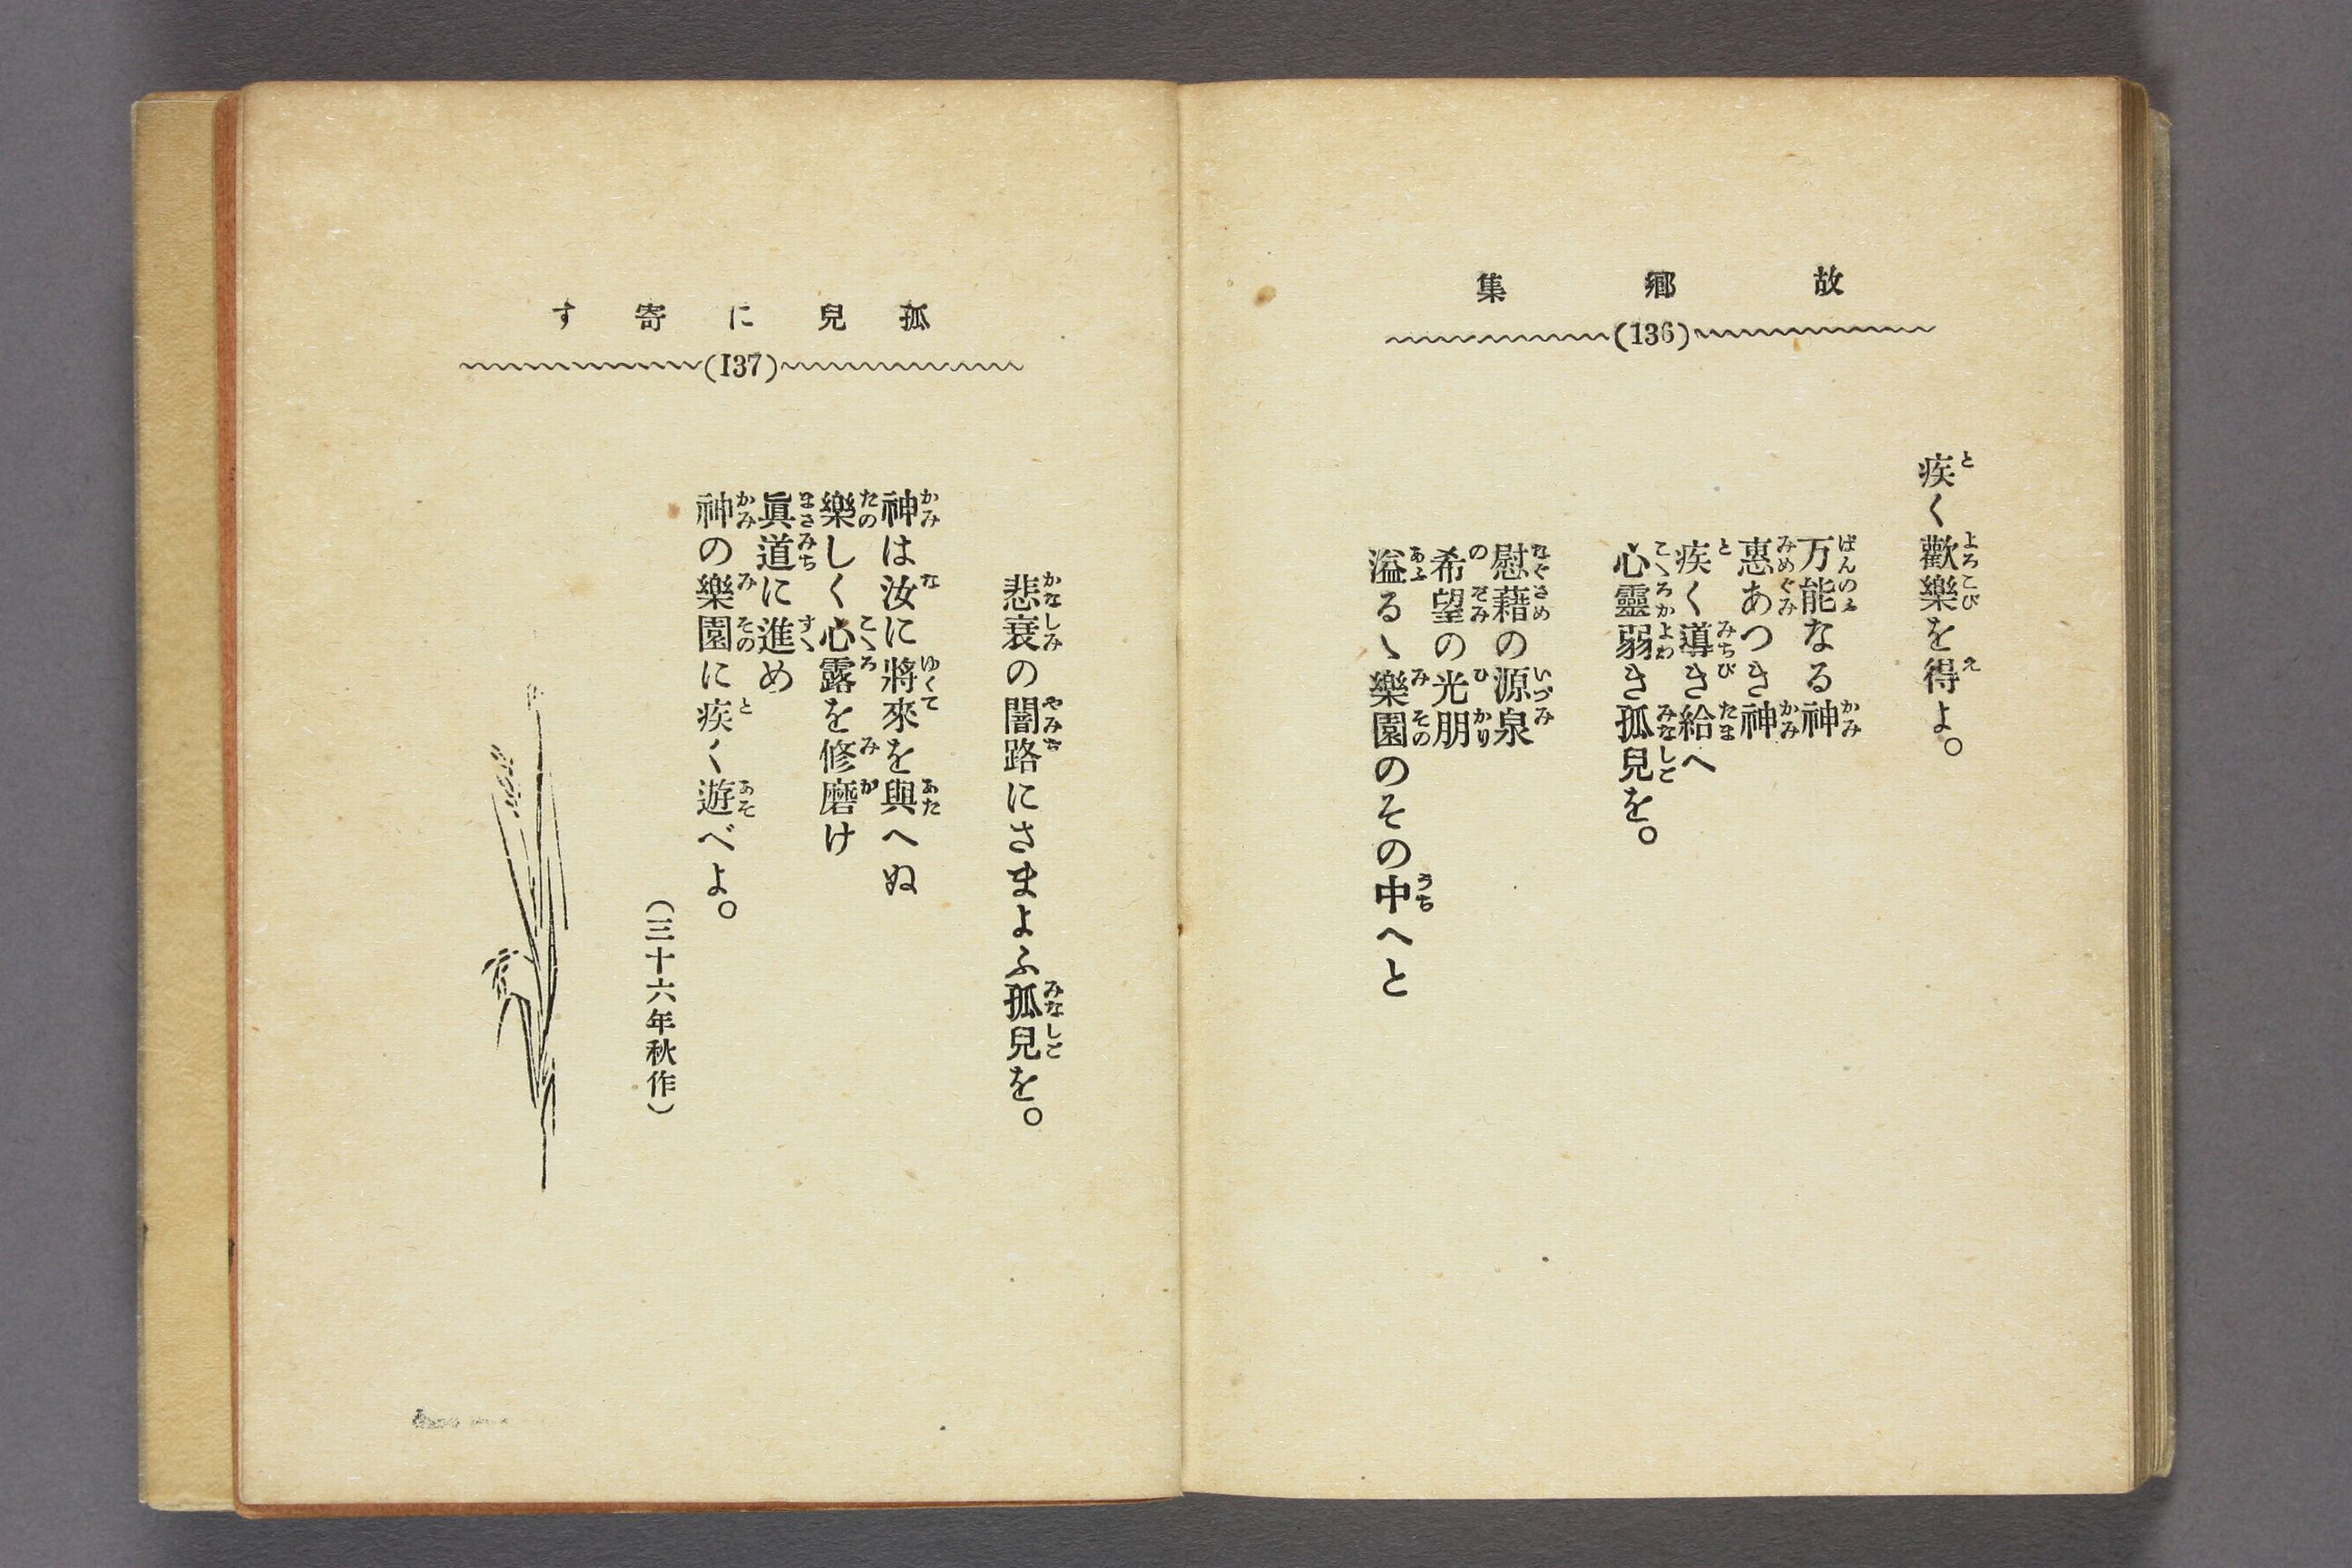 故郷集
(136)
疾く歡樂を得よ。
万能なる神
惠あつき神
疾く導き給へ
心靈弱き孤兒を。
慰藉の源泉
希望の光朋
溢るゝ樂園のその中へと
孤兒に寄す
(137)
悲衰の闇路にさまよふ孤兒を。
神は汝に將來を與へぬ
樂しく心露を修磨け
眞道に進め
神の樂園に疾く遊べよ。
(三十六年秋作)